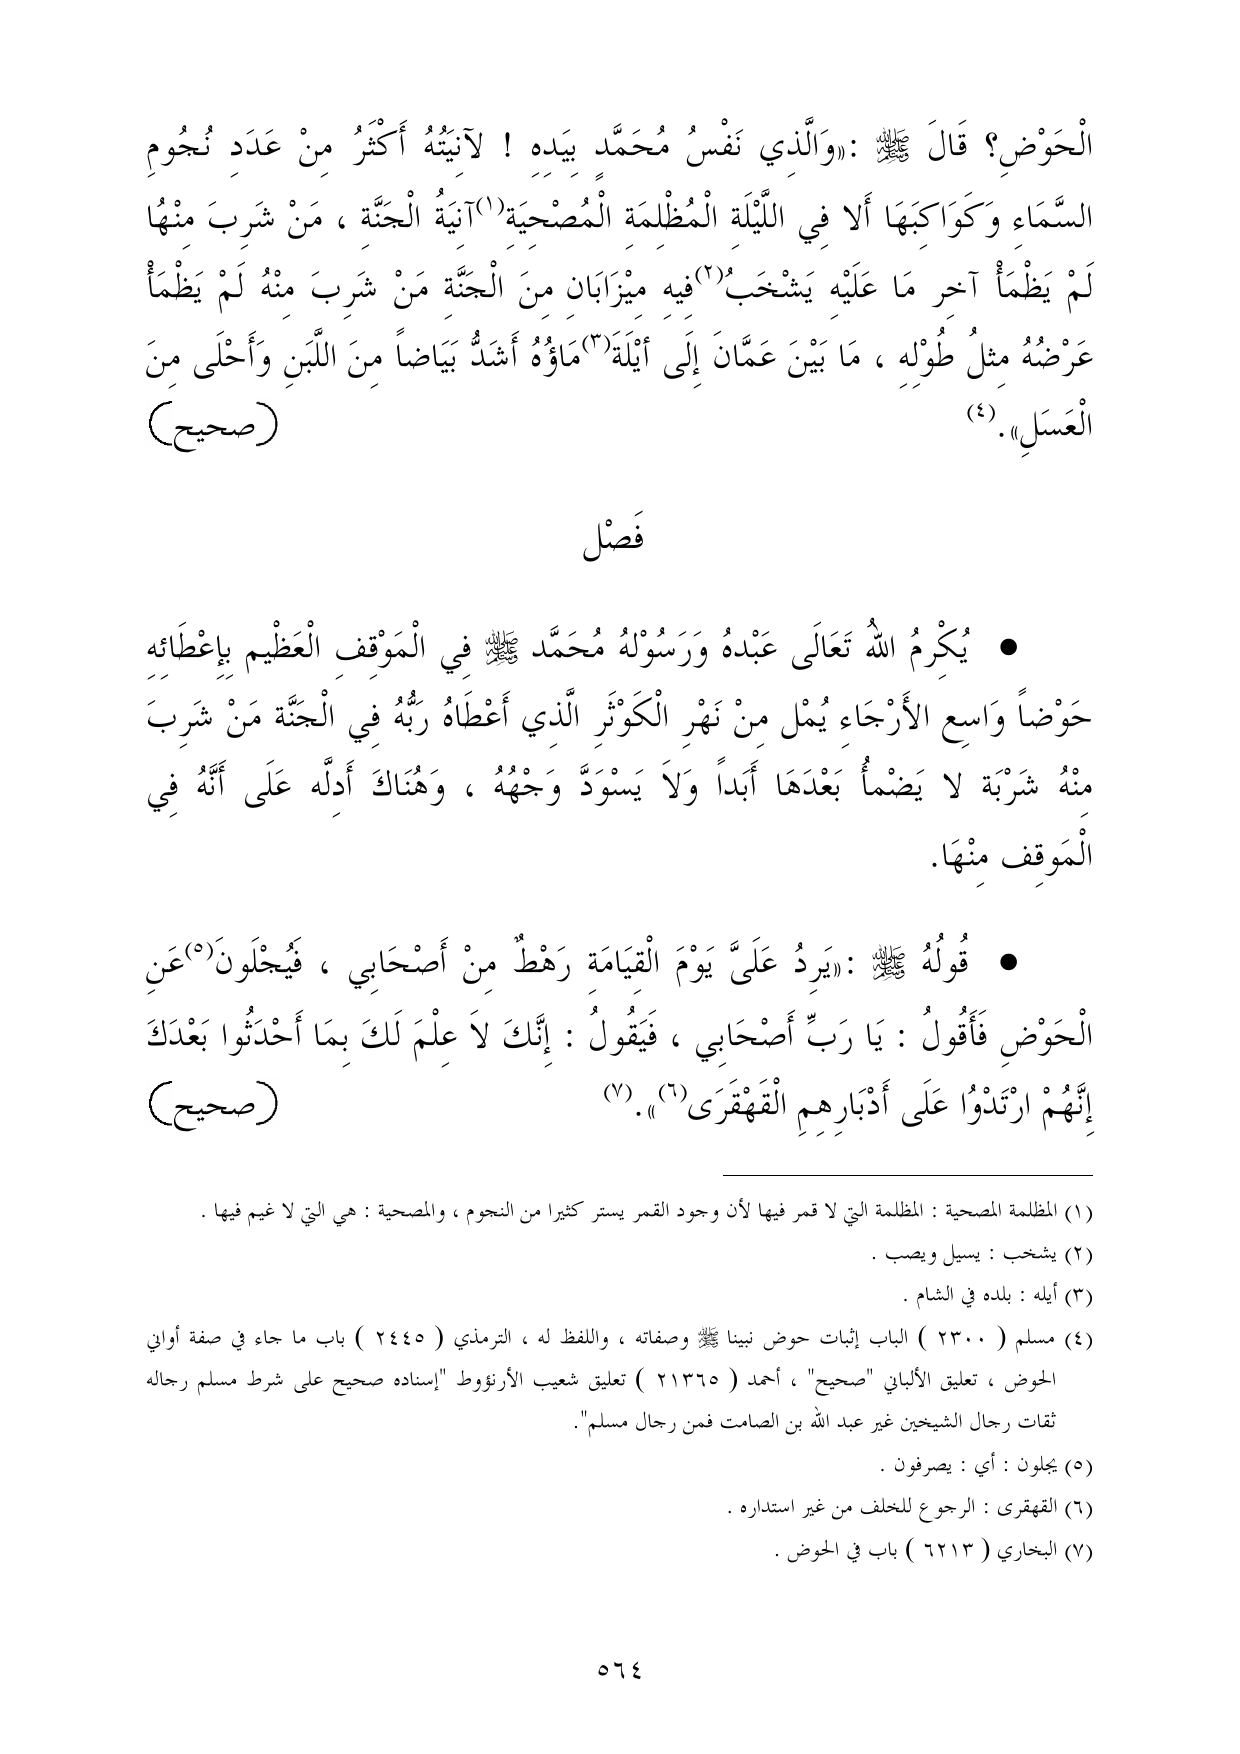 الْحَوْضِ؟ قَالَ ﷺ :«وَالَّذِي نَفْسُ مُحَمَّدٍ بِيَدِهِ ! لآنِيَتُهُ أَكْثَرُ مِنْ عَدَدِ نُجُومِ
السَّمَاءِ وَكَوَاكِبَهَا أَلا فِي اللَّيْلَةِ الْمُظْلِمَةِ الْمُصْحِيَةِ(١)آنِيَةُ الْجَنَّةِ ، مَنْ شَرِبَ مِنْهُا
لَمْ يَظْمَأْ آخِر مَا عَلَيْهِ يَشْخَبُ(٢)فِيهِ مِيْزَابَانِ مِنَ الْجَنَّةِ مَنْ شَرِبَ مِنْهُ لَمْ يَظْمَأْ
عَرْضُهُ مِثلُ طُوْلِهِ ، مَا بَيْنَ عَمَّانَ إِلَى أَيْلَةَ(٣)مَاؤُهُ أَشَدُّ بَيَاضاً مِنَ اللَّبَنِ وَأَحْلَى مِنَ
الْعَسَلِ».(٤) (صحيح)
فَصْل
● يُكْرِمُ اللهُ تَعَالَى عَبْدهُ وَرَسُوْلهُ مُحَمَّد ﷺ فِي الْمَوْقِفِ الْعَظْيم بِإِعْطَائِهِ
حَوْضاً وَاسِع الأَرْجَاءِ يُمْل مِنْ نَهْرِ الْكَوْثَرِ الَّذِي أَعْطَاهُ رَبُّهُ فِي الْجَنَّة مَنْ شَرِبَ
مِنْهُ شَرْبَة لا يَضْمأُ بَعْدَهَا أَبَداً وَلاَ يَسْوَدَّ وَجْهُهُ ، وَهُنَاكَ أَدِلَّه عَلَى أَنَّهُ فِي
الْمَوقِف مِنْهَا.
● قُولُهُ ﷺ :«يَرِدُ عَلَىَّ يَوْمَ الْقِيَامَةِ رَهْطٌ مِنْ أَصْحَابِي ، فَيُجْلَونَ(٥)عَنِ
الْحَوْضِ فَأَقُولُ : يَا رَبِّ أَصْحَابِي ، فَيَقُولُ : إِنَّكَ لاَ عِلْمَ لَكَ بِمَا أَحْدَثُوا بَعْدَكَ
إِنَّهُمْ ارْتَدْوُا عَلَى أَدْبَارِهِمِ الْقَهْقَرَى(٦)».(٧) (صحيح)
(١) المظلمة المصحية : المظلمة التي لا قمر فيها لأن وجود القمر يستر كثيرا من النجوم ، والمصحية : هي التي لا غيم فيها .
(٢) يشخب : يسيل ويصب .
(٣) أيله : بلده في الشام .
(٤) مسلم ( ٢٣٠٠ ) الباب إثبات حوض نبينا ﷺ وصفاته ، واللفظ له ، الترمذي ( ٢٤٤٥ ) باب ما جاء في صفة أواني
الحوض ، تعليق الألباني "صحيح" ، أحمد ( ٢١٣٦٥ ) تعليق شعيب الأرنؤوط "إسناده صحيح على شرط مسلم رجاله
ثقات رجال الشيخين غير عبد الله بن الصامت فمن رجال مسلم".
(٥) يجلون : أي : يصرفون .
(٦) القهقرى : الرجوع للخلف من غير استداره .
(٧) البخاري ( ٦٢١٣ ) باب في الحوض .
٥٦٤